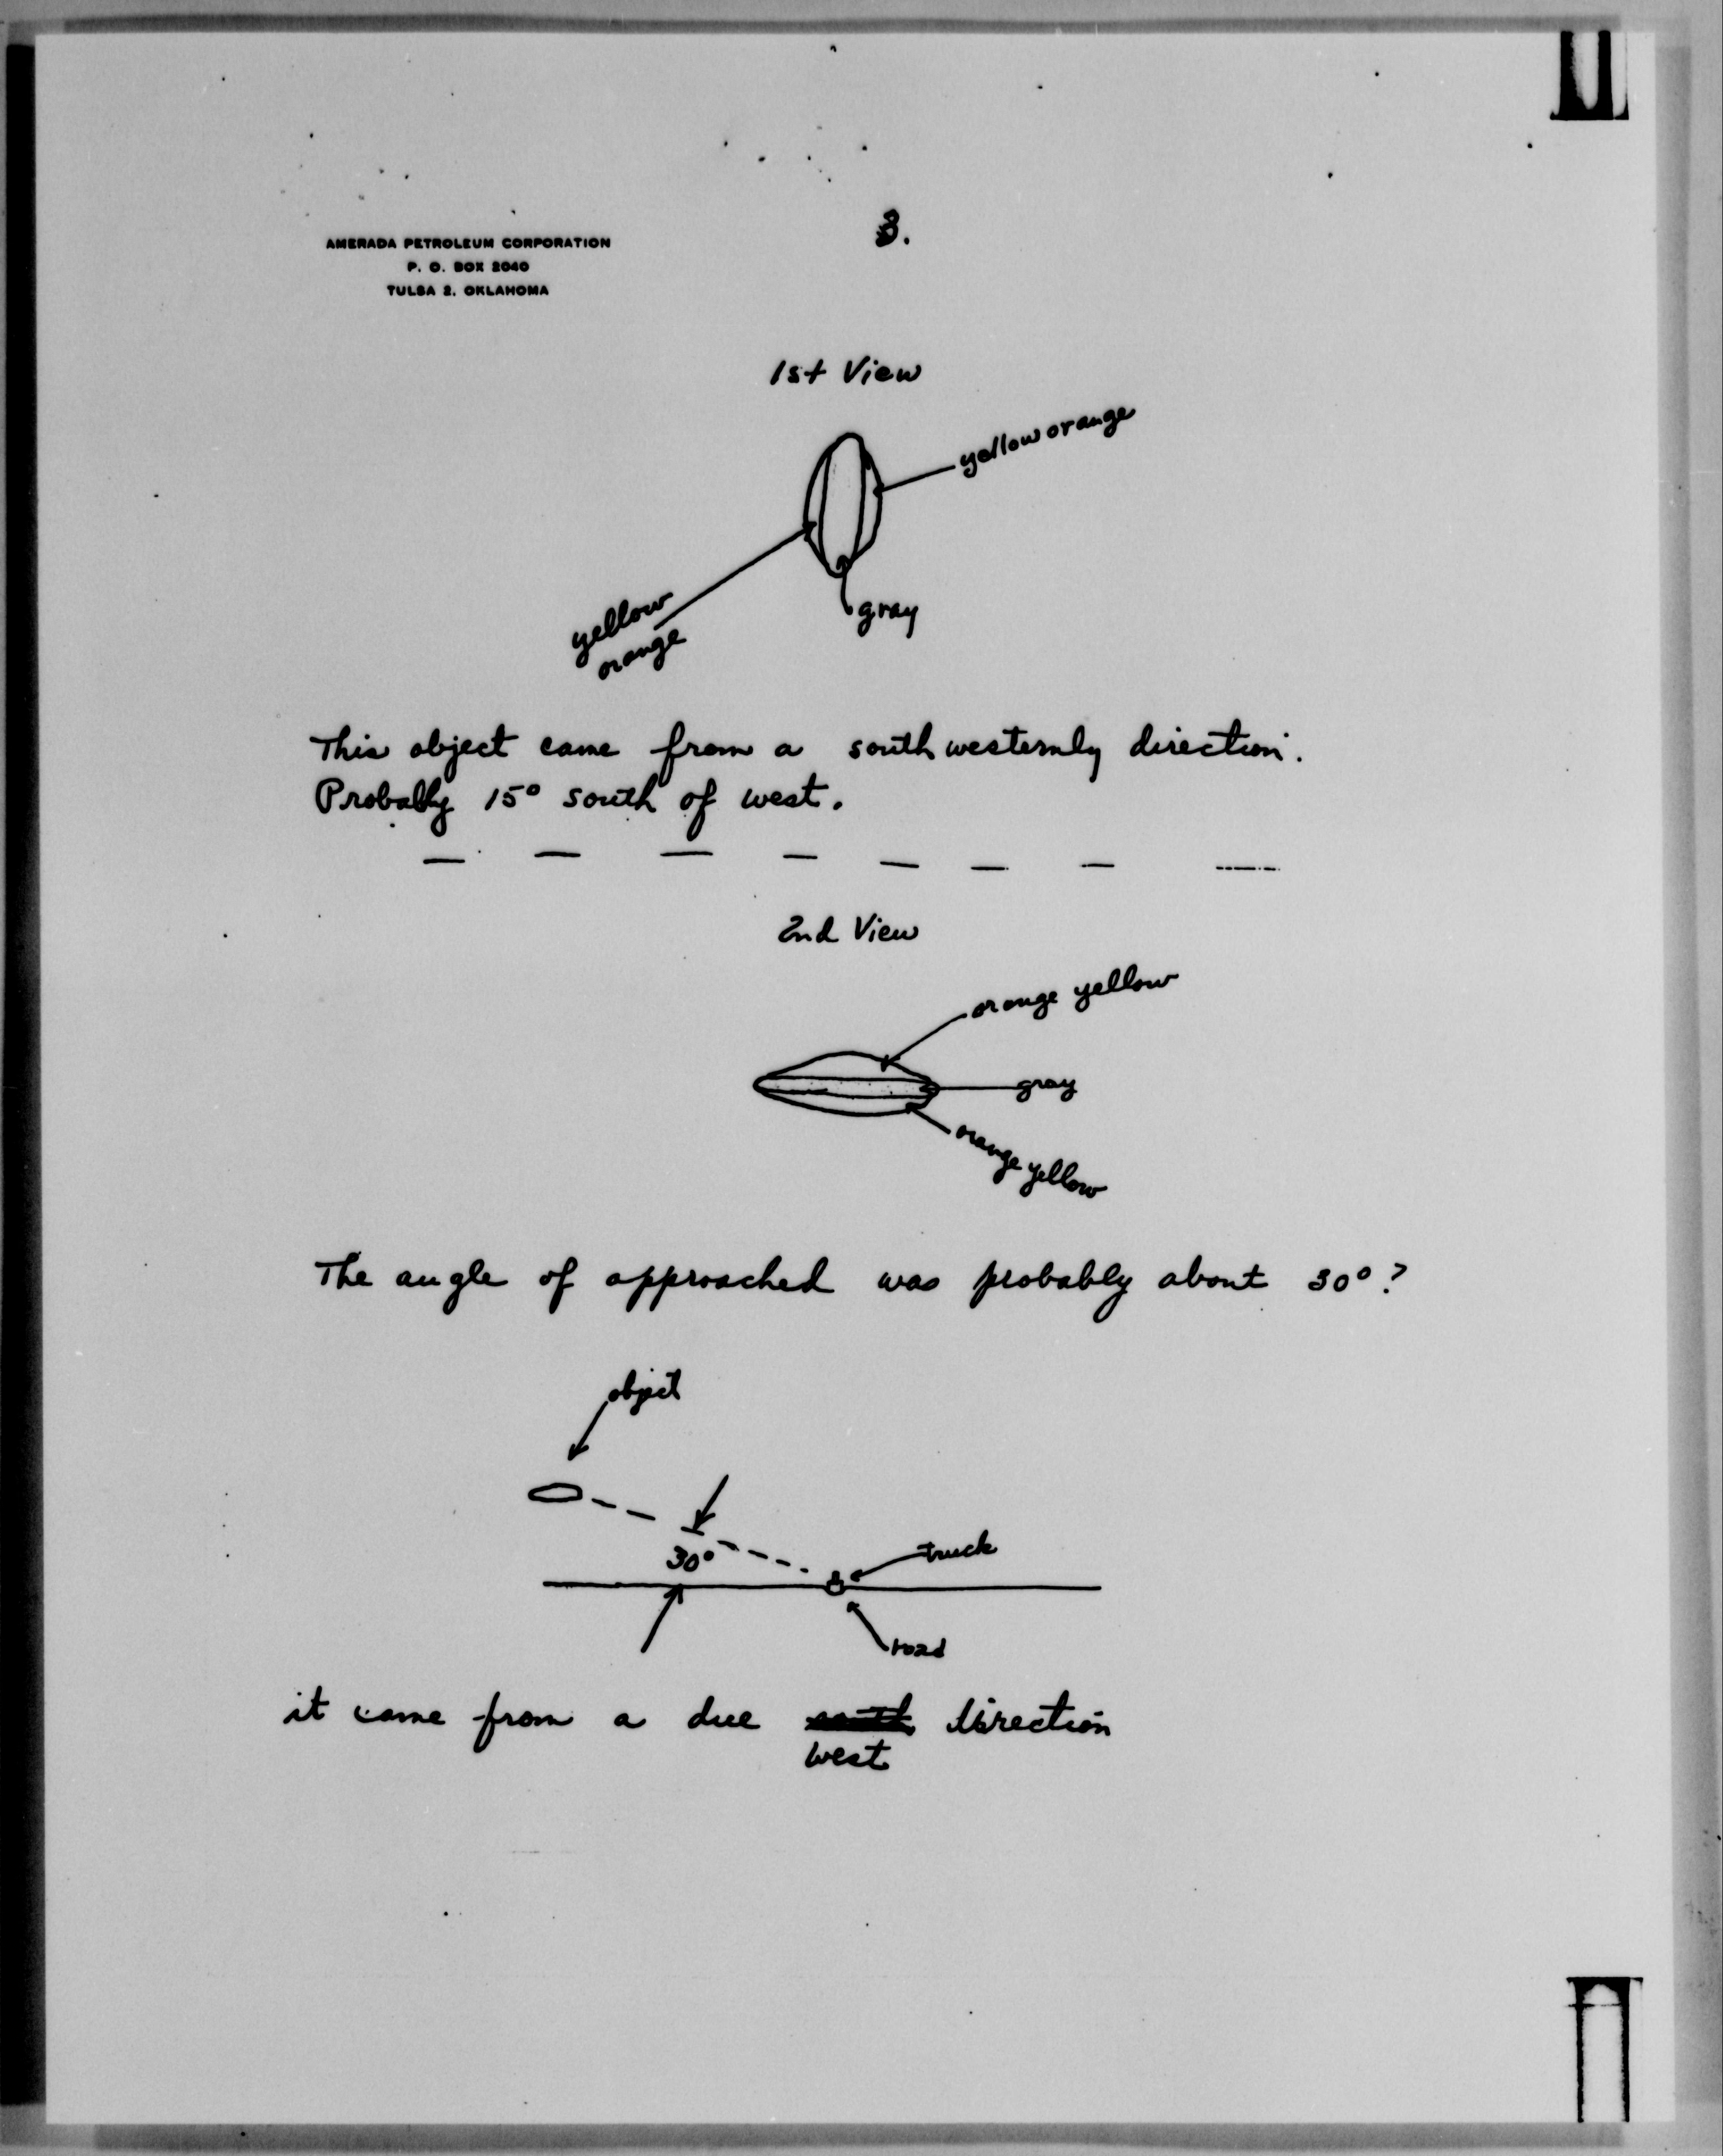 3.
AMERADA PETROLEUM CORPORATION
P. O. BOX 2040
TULSA 2, OKLAHOMA
1st View
yellow orange
yellow
orange
gray
This object came from a southwesternly direction.
Probably 15° south of west.
2nd View
orange yellow
gray
orange yellow
The angle of approached was probably about 30°?
object
30°
truck
road
it came from a due south direction
west